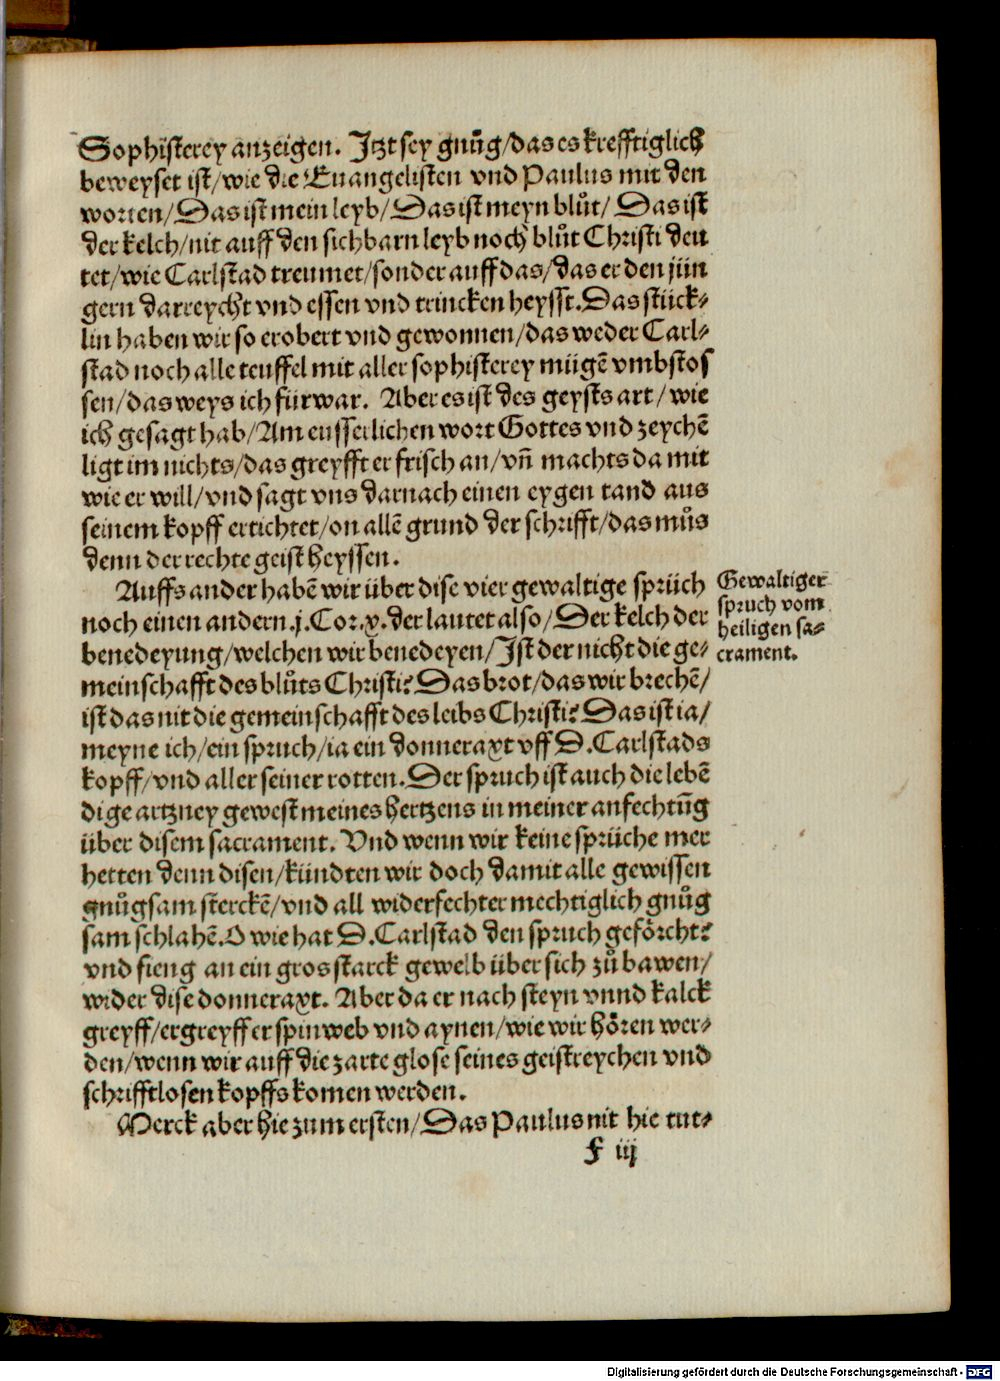 Sophisterey anzeigen. Jtzt sey gnůg/das es krefftiglich
beweyset ist/wie die Euangelisten vnd Paulus mit den
worten/Das ist mein leyb/Das ist meyn blůt/ Das ist
der kelch/nit auff den sichbarn leyb noch blůt Christi deu
tet/wie Carlstad treumet/sonder auff das/das er den jün
gern darreycht vnd essen vnd trincken heysst. Das stück-
lin haben wir so erobert vnd gewonnen/das weder Carl-
stad noch alle teuffel mit aller sophisterey mügē vmbstos
sen/das weys ich fürwar. Aber es ist des geysts art/wie
ich gesagt hab/Am eusserlichen wort Gottes vnd zeychē
ligt im nichts/das greyfft er frisch an/vñ machts da mit
wie er will/vnd sagt vns darnach einen eygen tand aus
seinem kopff ertichtet/on allē grund der schrifft/das můs
denn der rechte geist heyssen.
Auffs ander habē wir über dise vier gewaltige sprüch
noch einen andern.j.Cor.x.der lautet also/Der kelch der
benedeyung/welchen wir benedeyen/Jst der nicht die ge-
meinschafft des blůts Christi? Das brot/das wir brechē/
ist das nit die gemeinschafft des leibs Christi? Das ist ia/
meyne ich/ein spruch/ia ein donneraxt vff D.Carlstads
kopff/vnd aller seiner rotten. Der spruch ist auch die lebē
dige artzney gewest meines hertzens in meiner anfechtūg
über disem sacrament. Vnd wenn wir keine sprüche mer
hetten denn disen/kündten wir doch damit alle gewissen
gnůgsam sterckē/vnd all widerfechter mechtiglich gnůg
sam schlahē. O wie hat D.Carlstad den spruch geförcht?
vnd fieng an ein gros starck gewelb über sich zů bawen/
wider dise donneraxt. Aber da er nach steyn vnnd kalck
greyff/ergreyff er spinweb vnd aynen/wie wir hören wer-
den/wenn wir auff die zarte glose seines geistreychen vnd
schrifftlosen kopffs komen werden.
Merck aber hie zum ersten/Das Paulus nit hie tut-
F iij
Gewaltiger
spruch vom
heiligen sa-
crament.
Digitalisierung gefördert durch die Deutsche Forschungsgemeinschaft - DFG